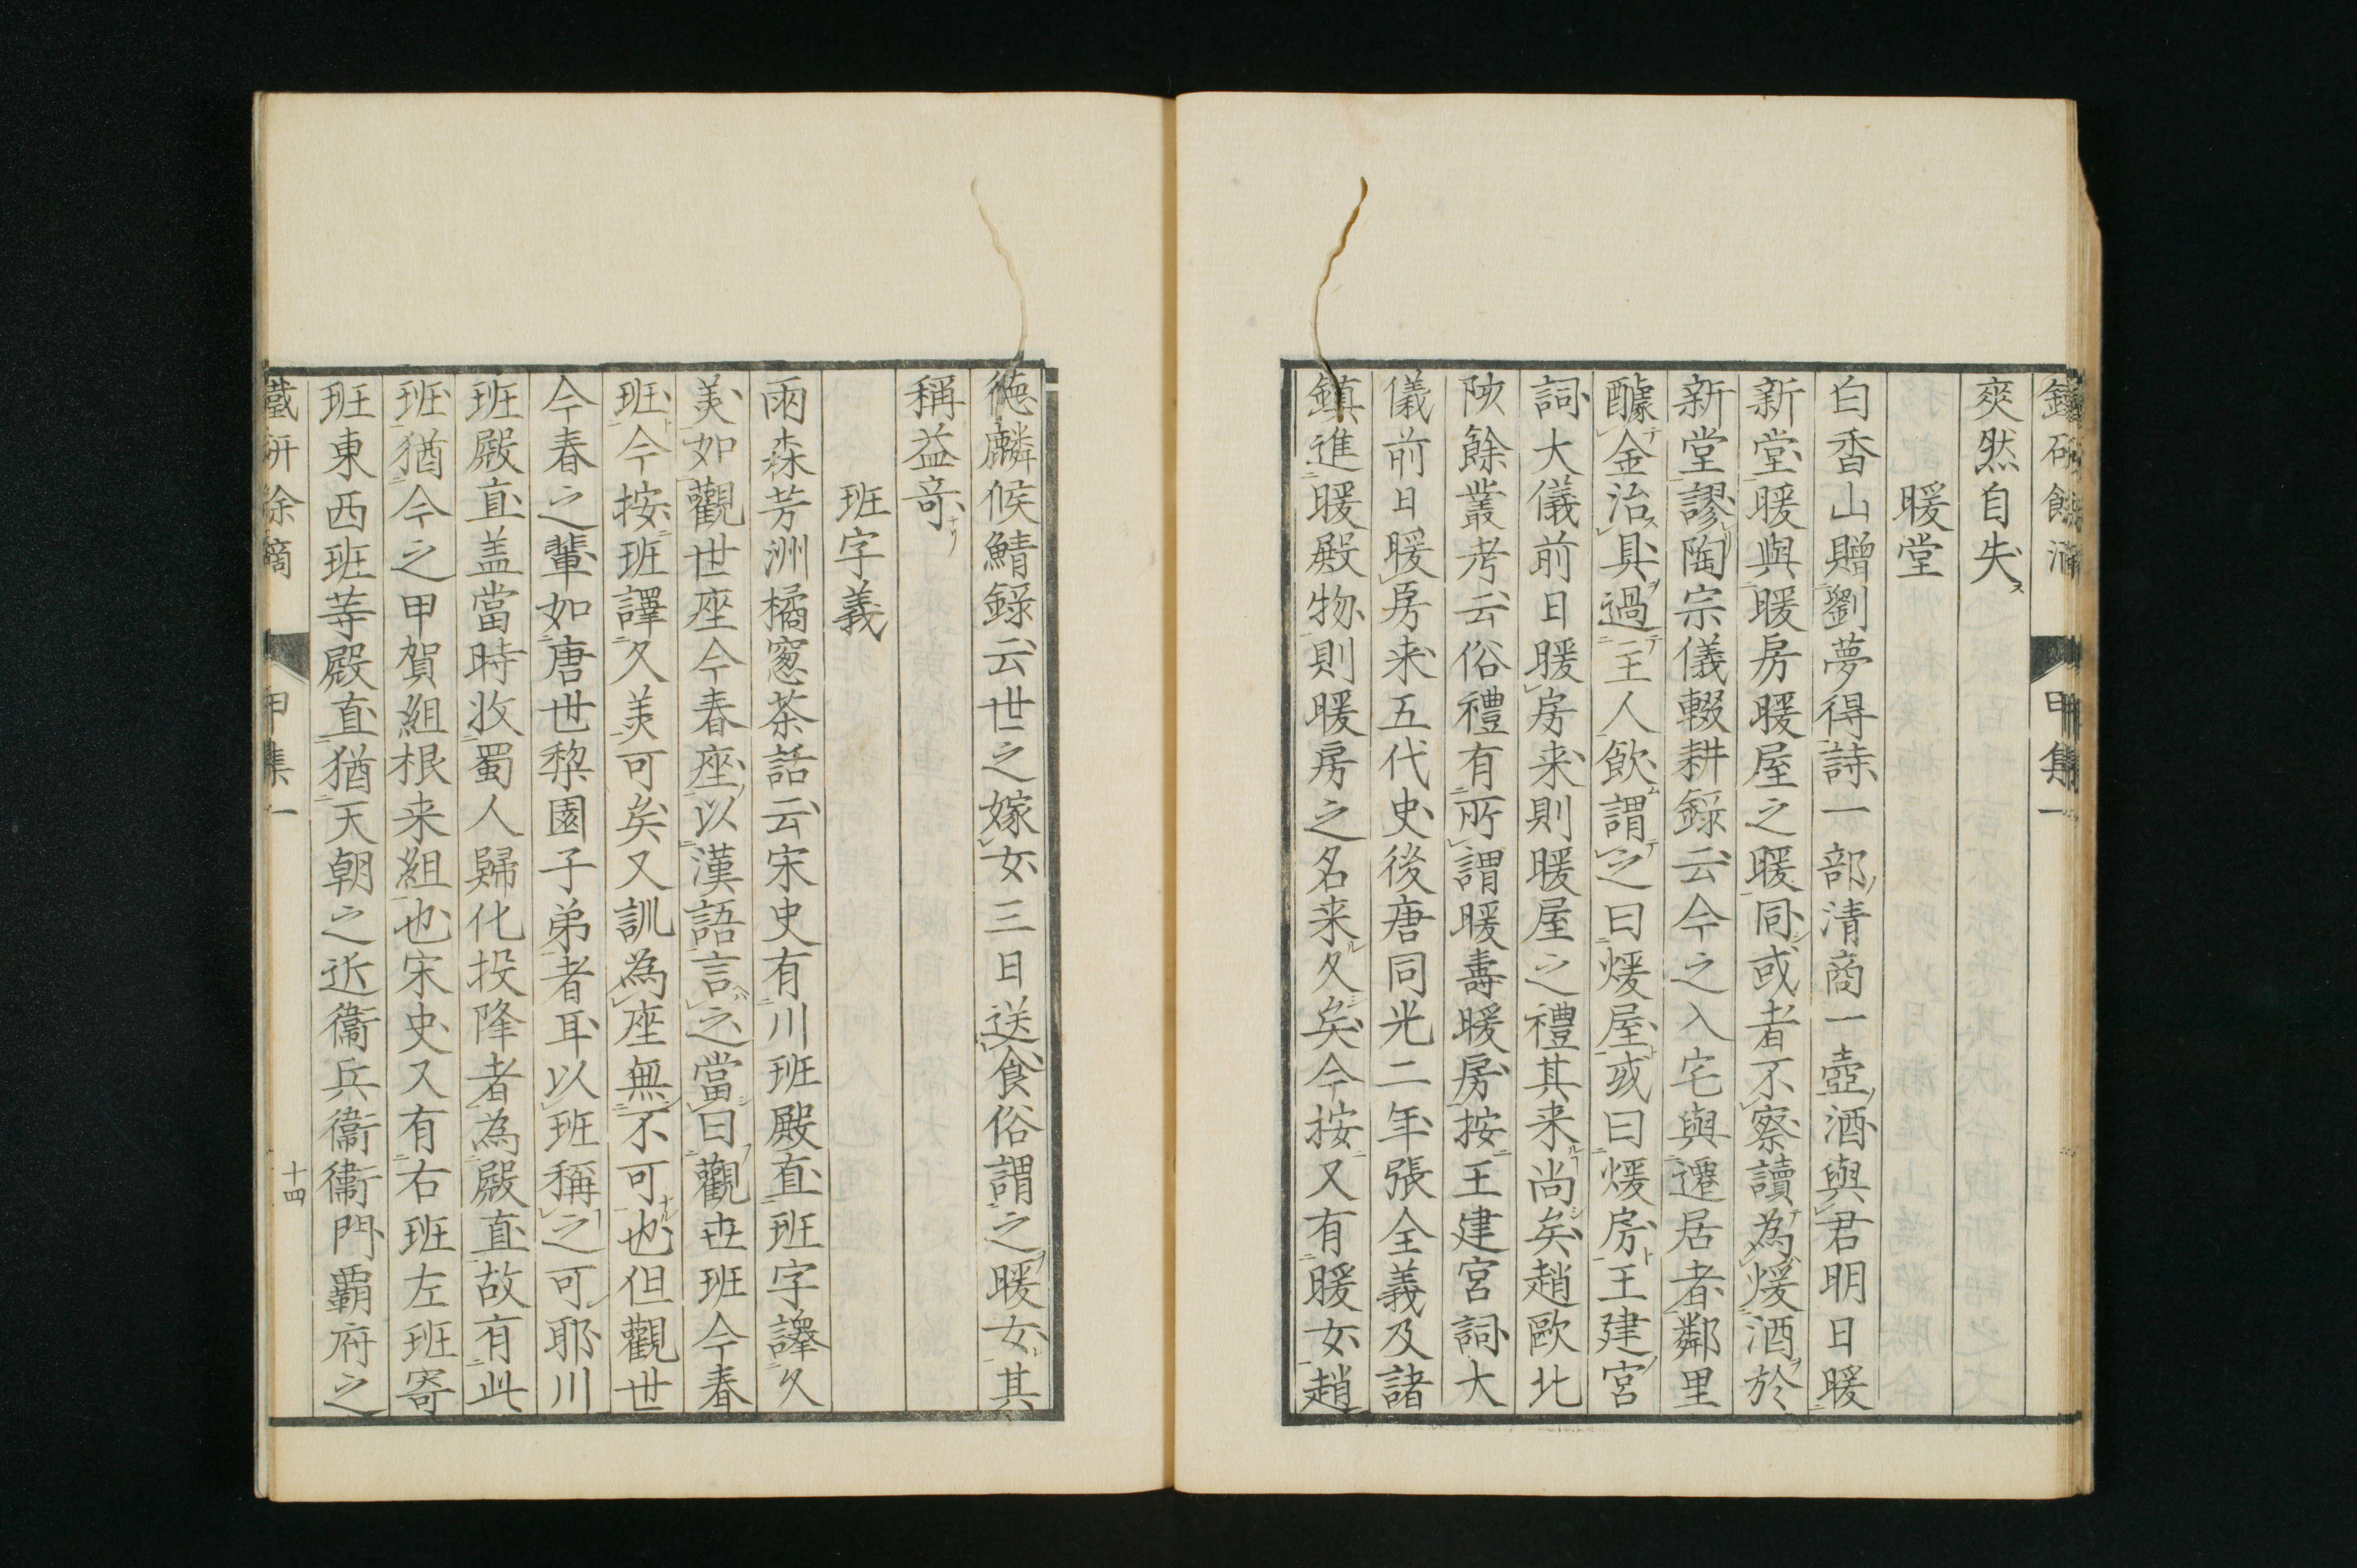 爽然自失ス
暖堂
白香山贈劉夢得詩一部清商一壺酒與君明日暖
新堂暖與暖房暖屋之暖同或者不察讀為煖酒於
新堂謬陶宗儀輟耕錄云今之入宅與遷居者鄰里
醵金治具過主人飲謂之曰煖屋或曰煖房王建宮
詞大儀前日暖房来則暖屋之禮其来尚矣趙歐北
陔餘叢考云俗禮有所謂暖壽暖房按王建宮詞大
儀前日暖房来五代史後唐同光二年張全義及諸
鎮進暖殿物則暖房之名来久矣今按又有暖女趙
德麟候鯖錄云世之嫁女三日送食俗謂之暖女其
稱益竒
班字義
雨森芳洲橘窻茶話云宋史有川班殿直班字譯久
羙如觀世座今春座以漢語言之當曰觀世班今春
班今按班譯久羙可矣又訓為座無不可也但觀世
今春之輩如唐世棃園子弟者耳以班稱之可耶川
班殿直盖當時收蜀人歸化投降者為殿直故有此
班猶今之甲賀組根来組也宋史又有右班左班寄
班東西班等殿直猶天朝之近衞兵衞衞門覇府之
甲集一
十四